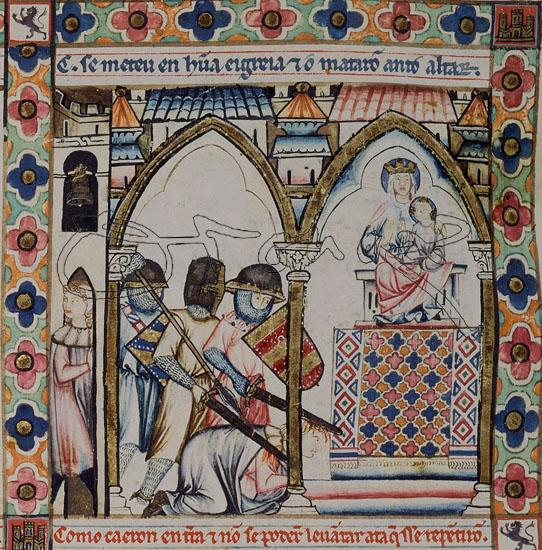 C. se meteu en hũa eigreia ⁊ o mataron anto altar.
Como caeron en tr̃a ⁊ nõ se poder̃ leuãtar ata q̃ sse repẽtirõ.